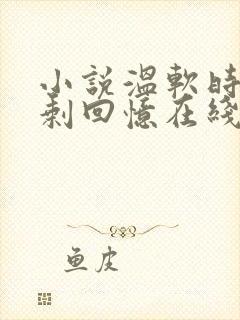 小説溫軟時
剩回憶在綫
鱼皮